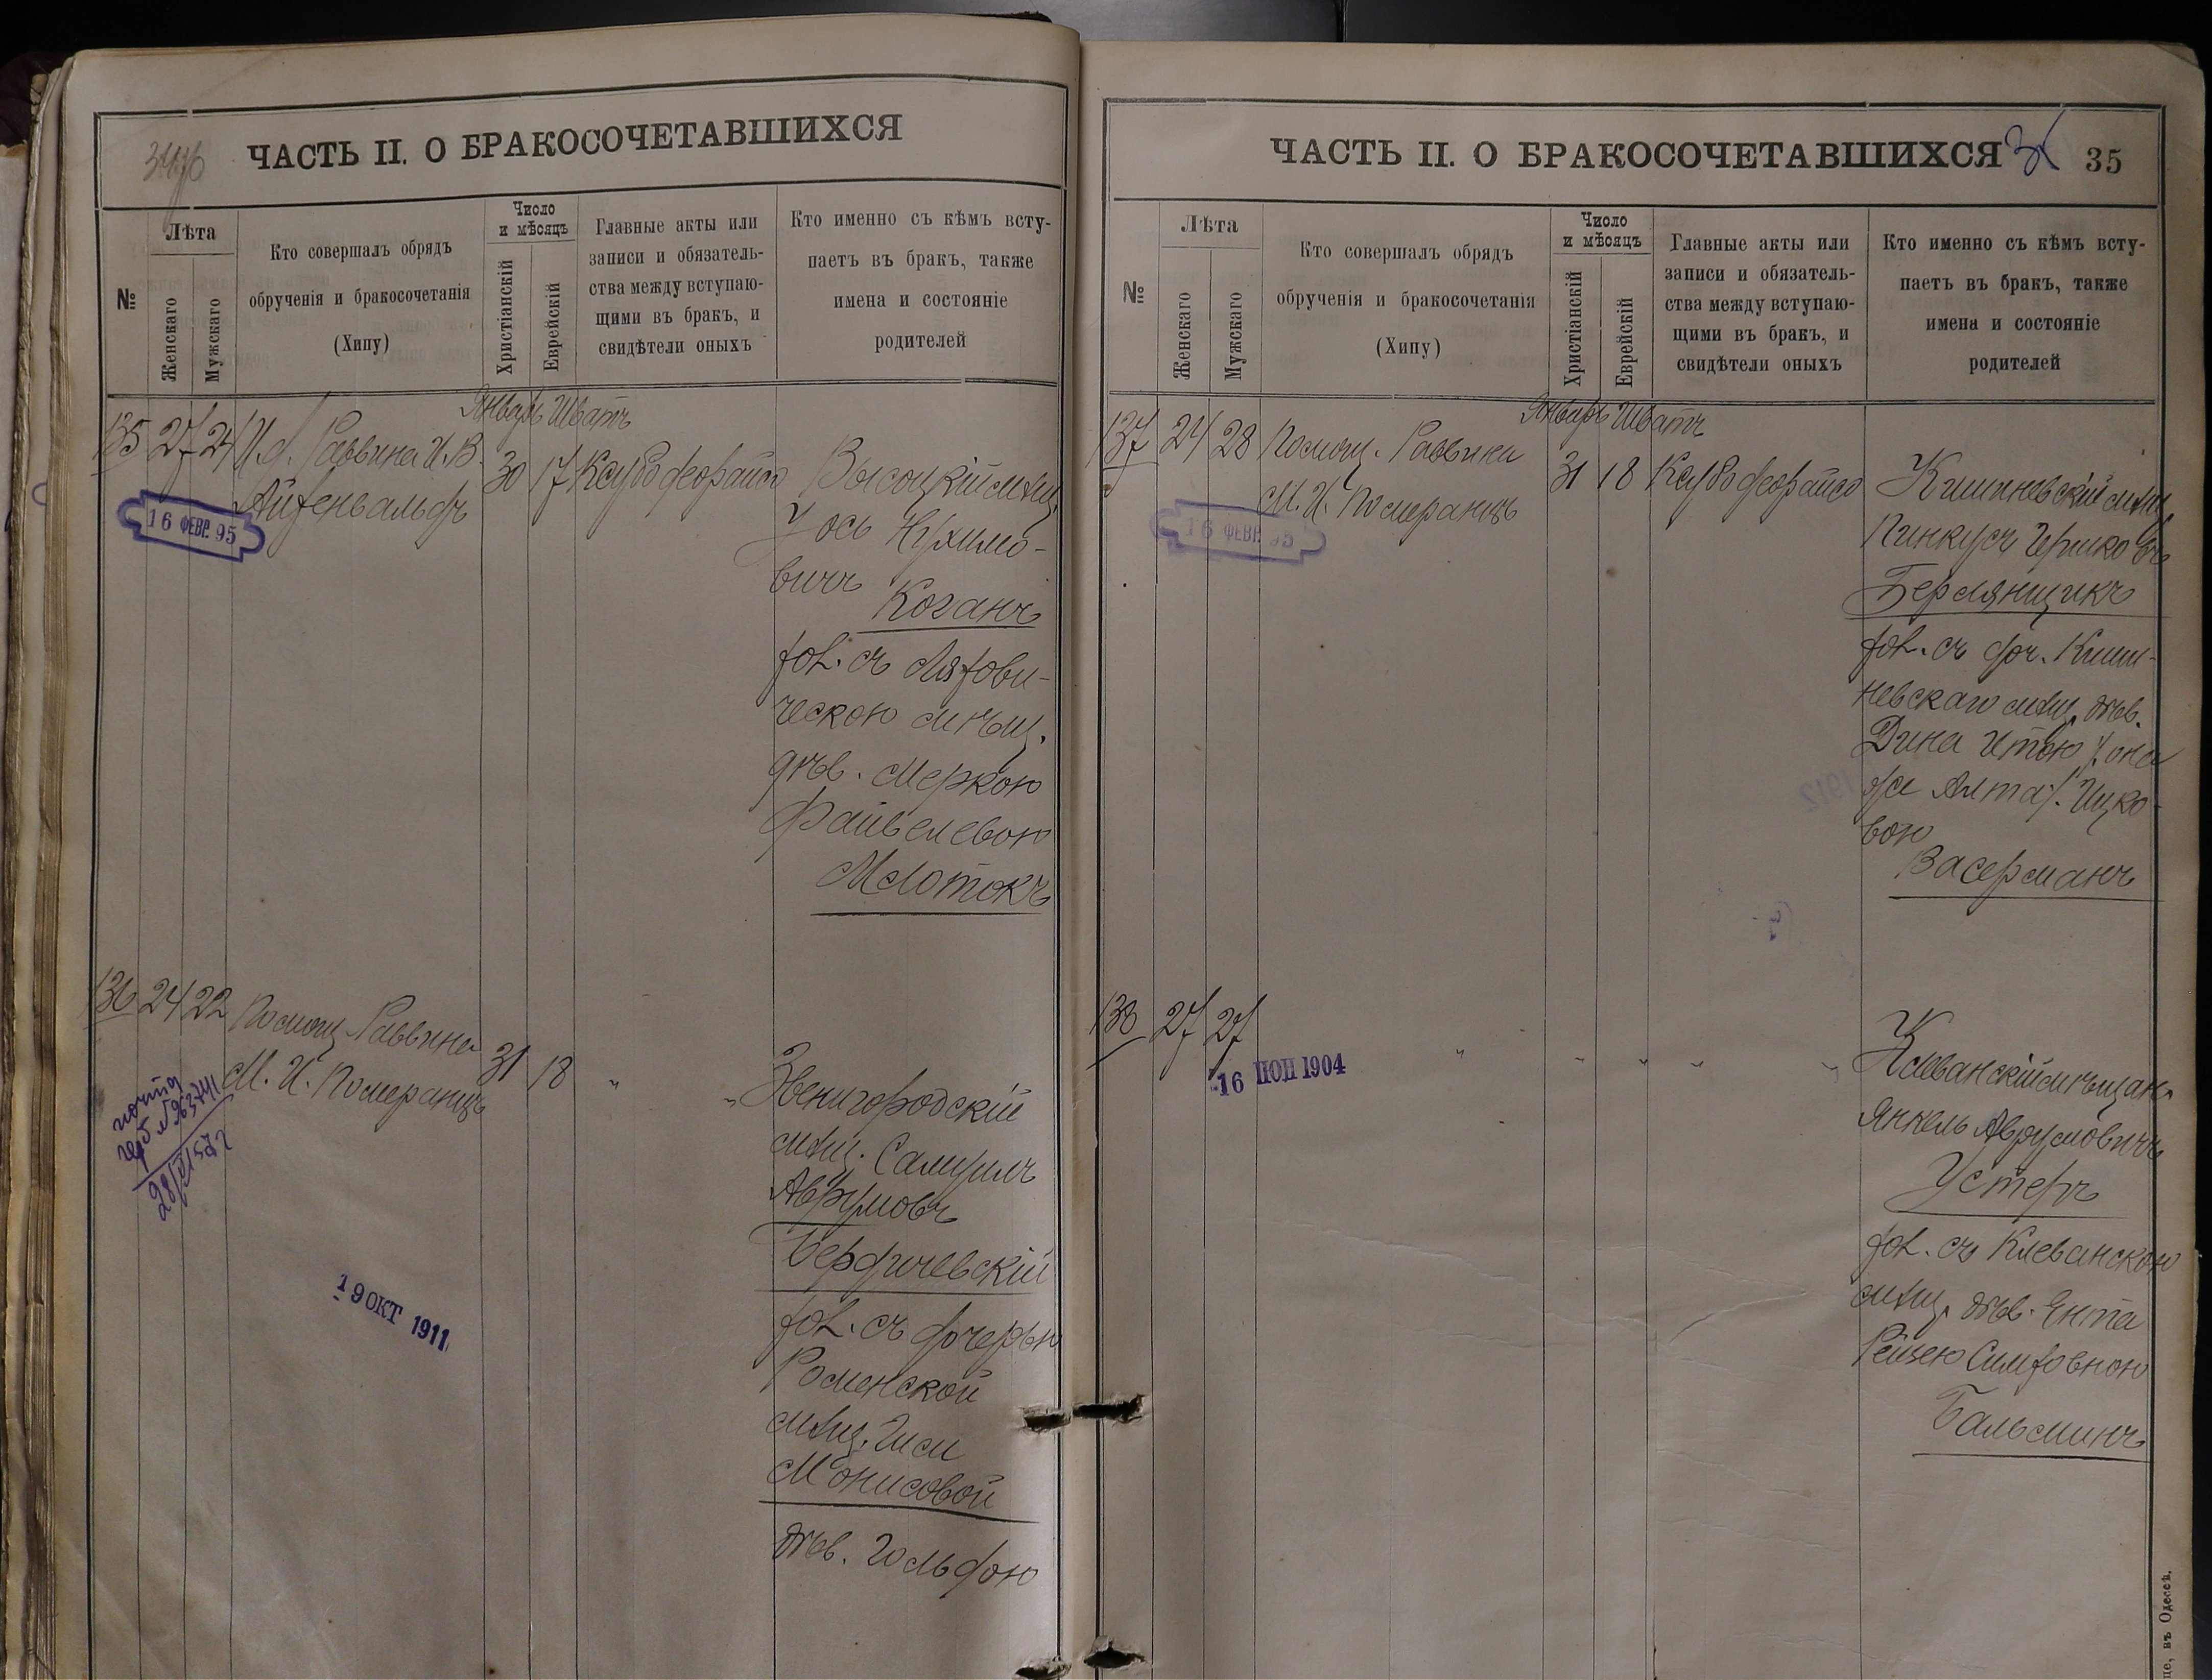 ЧАСТЬ II. О БРАКОСОЧЕТАВШИХСЯ
№
Лѣта
Женскаго
Мужскаго
Кто совершалъ обрядъ
обрученія и бракосочетанія
(Хипу)
Число
и мѣсяцъ
Христіанскій
Еврейскій
Главные акты или
записи и обязатель-
ства между вступаю-
щими въ бракъ, и
свидѣтели оныхъ
Кто именно съ кѣмъ всту-
паетъ въ бракъ, также
имена и состояніе
родителей
Январь Шватъ
135 27 24 И.д. Раввина И.В.
Айзенвальдъ
30 17
16 ФЕВР. 95
Высоцкій мѣщ.
Іось Нухимо-
вичъ
Коганъ
хол. съ Ляховн-
ческою мѣщ.
дѣв. Меркою
Файвелевою
Молотокъ
136 24 22 Помощ. Раввина
М. И. Померанцъ
31 18 „ „
19 ОКТ 1911
Звенигородскій
мѣщ. Самуилъ
Аврумовъ
Бердичевскій
хол. съ дочерью
Роменской
мѣщ.
Монисовой
дѣв. Гольдою
ЧАСТЬ II. О БРАКОСОЧЕТАВШИХСЯ 35
№
Лѣта
Женскаго
Мужскаго
Кто совершалъ обрядъ
обрученія и бракосочетанія
(Хипу)
Число
и мѣсяцъ
Христіанскій
Еврейскій
Главные акты или
записи и обязатель-
ства между вступаю-
щими въ бракъ, и
свидѣтели оныхъ
Кто именно съ кѣмъ всту-
паетъ въ бракъ, также
имена и состояніе
родителей
Январь Шватъ
137 24 28 Помощ. Раввина
М. И. Померанцъ
31 18
16 ФЕВР. 95
Кишиневскій мѣщ.
Пинкусъ Гершковъ
Бермянщикъ
хол. съ доч. Киши-
невскаго мѣщ. дѣв.
Дина Итою /она
же Алта/ Ицко-
вою
Васерманъ
138 27 27 „ „ „ „ „
16 ІЮН 1904
Клеванскій мѣщан.
Янкель Аврумовичъ
Устеръ
хол. съ Клеванскою
мѣщ. дѣв. Ента
Рейзею Симховною
Бальминъ
въ Одессѣ.